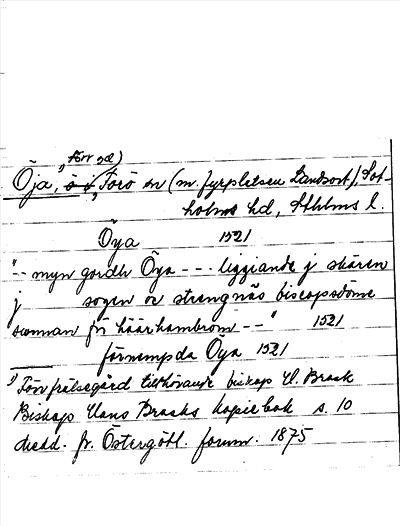 förr gd)
Öja, ö i Torö sn (m. fyrplatsen Landsort), Sot-
holms hd, Sthlms l.
Öya 1521
"-- myn gordh Öya --- liggiande j skären
j sogen ov strengnäs biscopsdöme
sunnan för häärhambrom --" 1521
förnempda Öya 1521
1) Förr frälsegård tillhörande biskop H. Brask
Biskop Hans Brasks kopiebok s. 10
Medd. fr. Östergötl. fornm. 1875